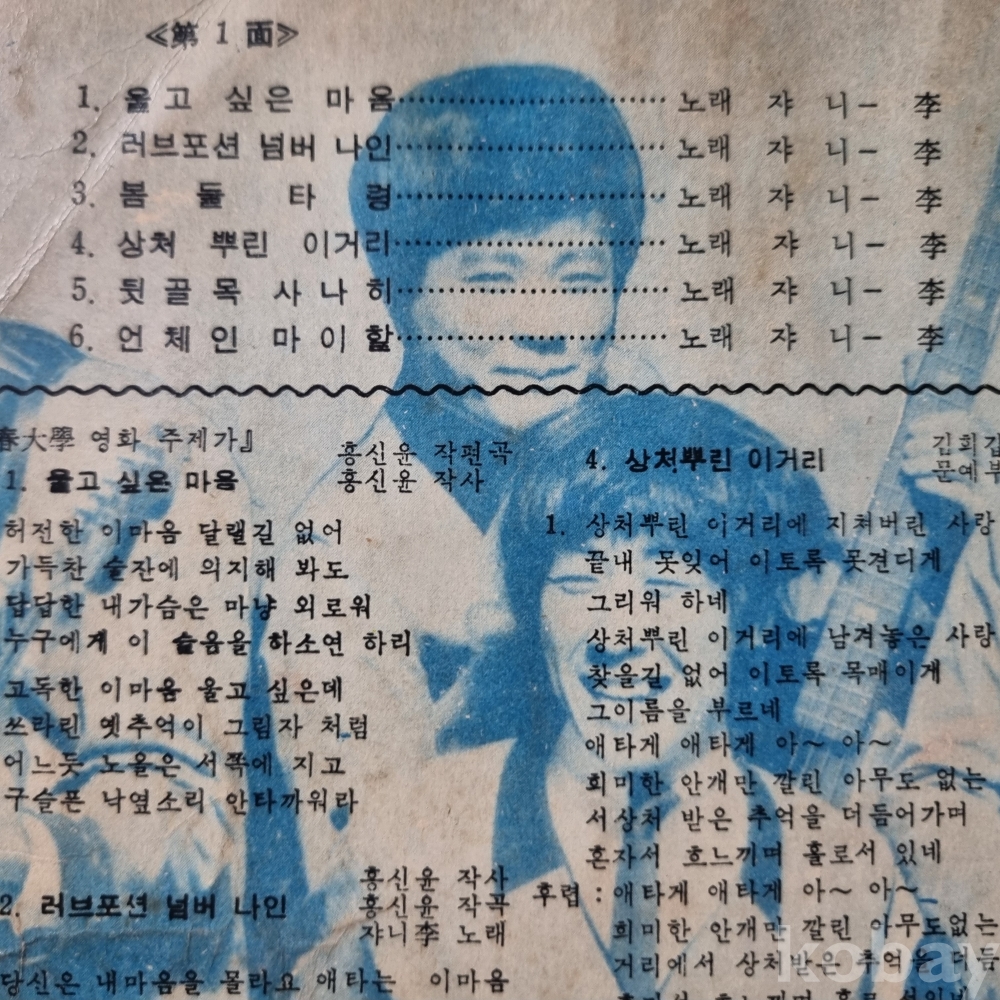 ≪第 1 面≫
1. 울고 싶은 마음⋯⋯⋯⋯⋯⋯⋯⋯노래 쟈 니ー 李
2. 러브포션 넘버 나인⋯⋯⋯⋯⋯⋯⋯⋯노래 쟈 니ー 李
3. 봄 둘 타 령⋯⋯⋯⋯⋯⋯⋯⋯노래 쟈 니ー 李
4. 상처 뿌린 이거리⋯⋯⋯⋯⋯⋯⋯⋯노래 쟈 니ー 李
5. 뒷 골 목 사 나 히⋯⋯⋯⋯⋯⋯⋯⋯노래 쟈 니ー 李
6. 언 체 인 마 이 핥⋯⋯⋯⋯⋯⋯⋯⋯노래 쟈 니ー 李
春大學 영화 주제가』
홍신윤 작편곡
1. 울고 싶은 마음 홍신윤 작사
허전한 이마음 달랠길 없어
가득찬 술잔에 의지해 봐도
답답한 내가슴은 마냥 외로워
누구에게 이 슬음을 하소연 하리
고독한 이마음 울고 싶은데
쓰라린 옛추억이 그림자 처럼
어느듯 노을은 서쪽에 지고
구슬픈 낙옆소리 안타까워라
홍신윤 작사
2. 러브포션 넘버 나인 홍신윤 작곡
쟈니李 노래
당신은 내마음을 몰라요 애타는 이마음
4. 상처뿌린 이거리 김회갑
문예부
1. 상처뿌린 이거리에 지쳐버린 사랑
끝내 못잊어 이토록 못견디게
그리워 하네
상처뿌린 이거리에 남겨놓은 사랑
찾을길 없어 이토록 목매이게
그이름을 부르네
애타게 애타게 아〜 아〜
희미한 안개만 깔린 아무도 없는
서상처 받은 추억을 더듬어가며
혼자서 흐느끼며 홀로서 있네
후렵 : 애타게 애타게 아〜 아〜
희미한 안개만 깔린 아무도없는
거리에서 상처받은 추억을 더듬
kobay